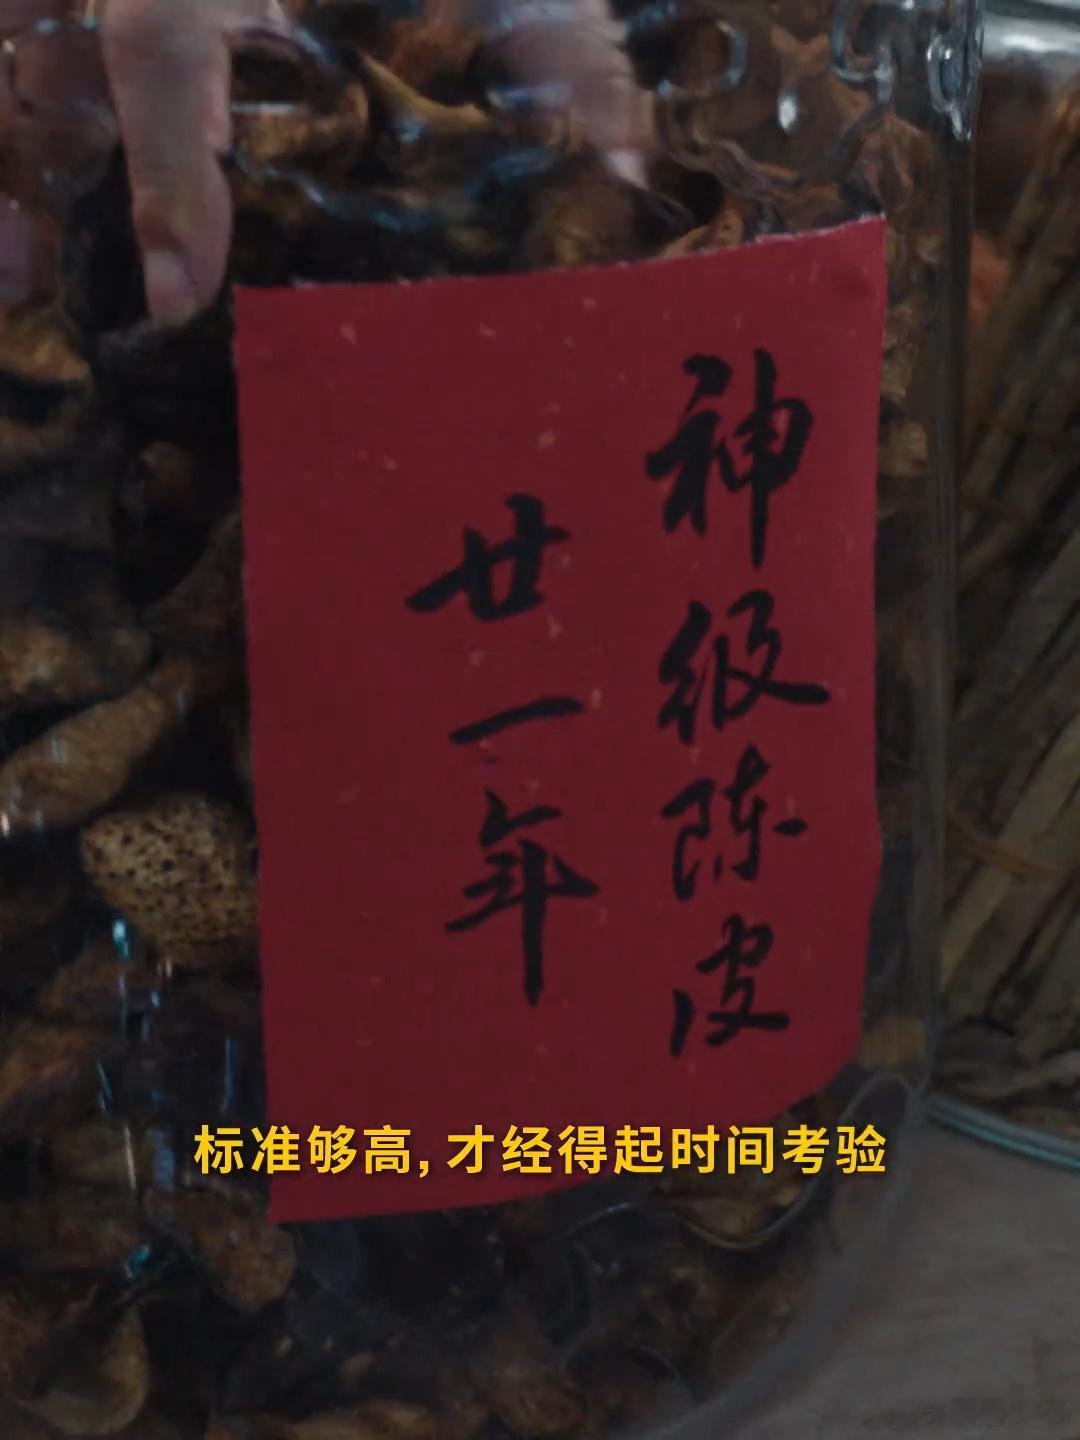 神级陈皮
廿一年
标准够高,才经得起时间考验